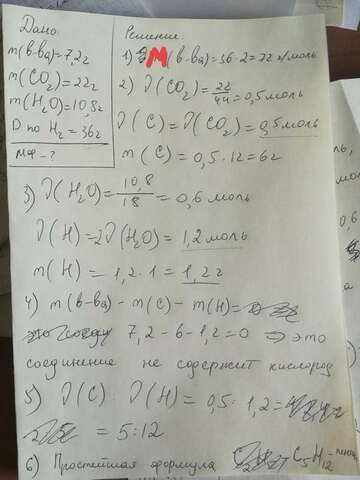 Дано:
m(в-ва)=7,2г
m(CO₂)=22г
m(H₂O)=10,8г
D по H₂=36г
МФ-?
Решение:
1) М(в-ва)=36·2=72 г/моль
2) ν(CO₂)=22/44=0,5моль
ν(C)=ν(CO₂)=0,5моль
m(C)=0,5·12=6г
3) ν(H₂O)=10,8/18=0,6моль
ν(H)=2ν(H₂O)=1,2моль
m(H)=1,2·1=1,2г
4) m(в-ва)-m(C)-m(H)=
7,2-6-1,2=0 ⇒ это
соединение не содержит кислород
5) ν(C):ν(H)=0,5:1,2=
=5:12
6) Простейшая формула C₅H₁₂-пентан